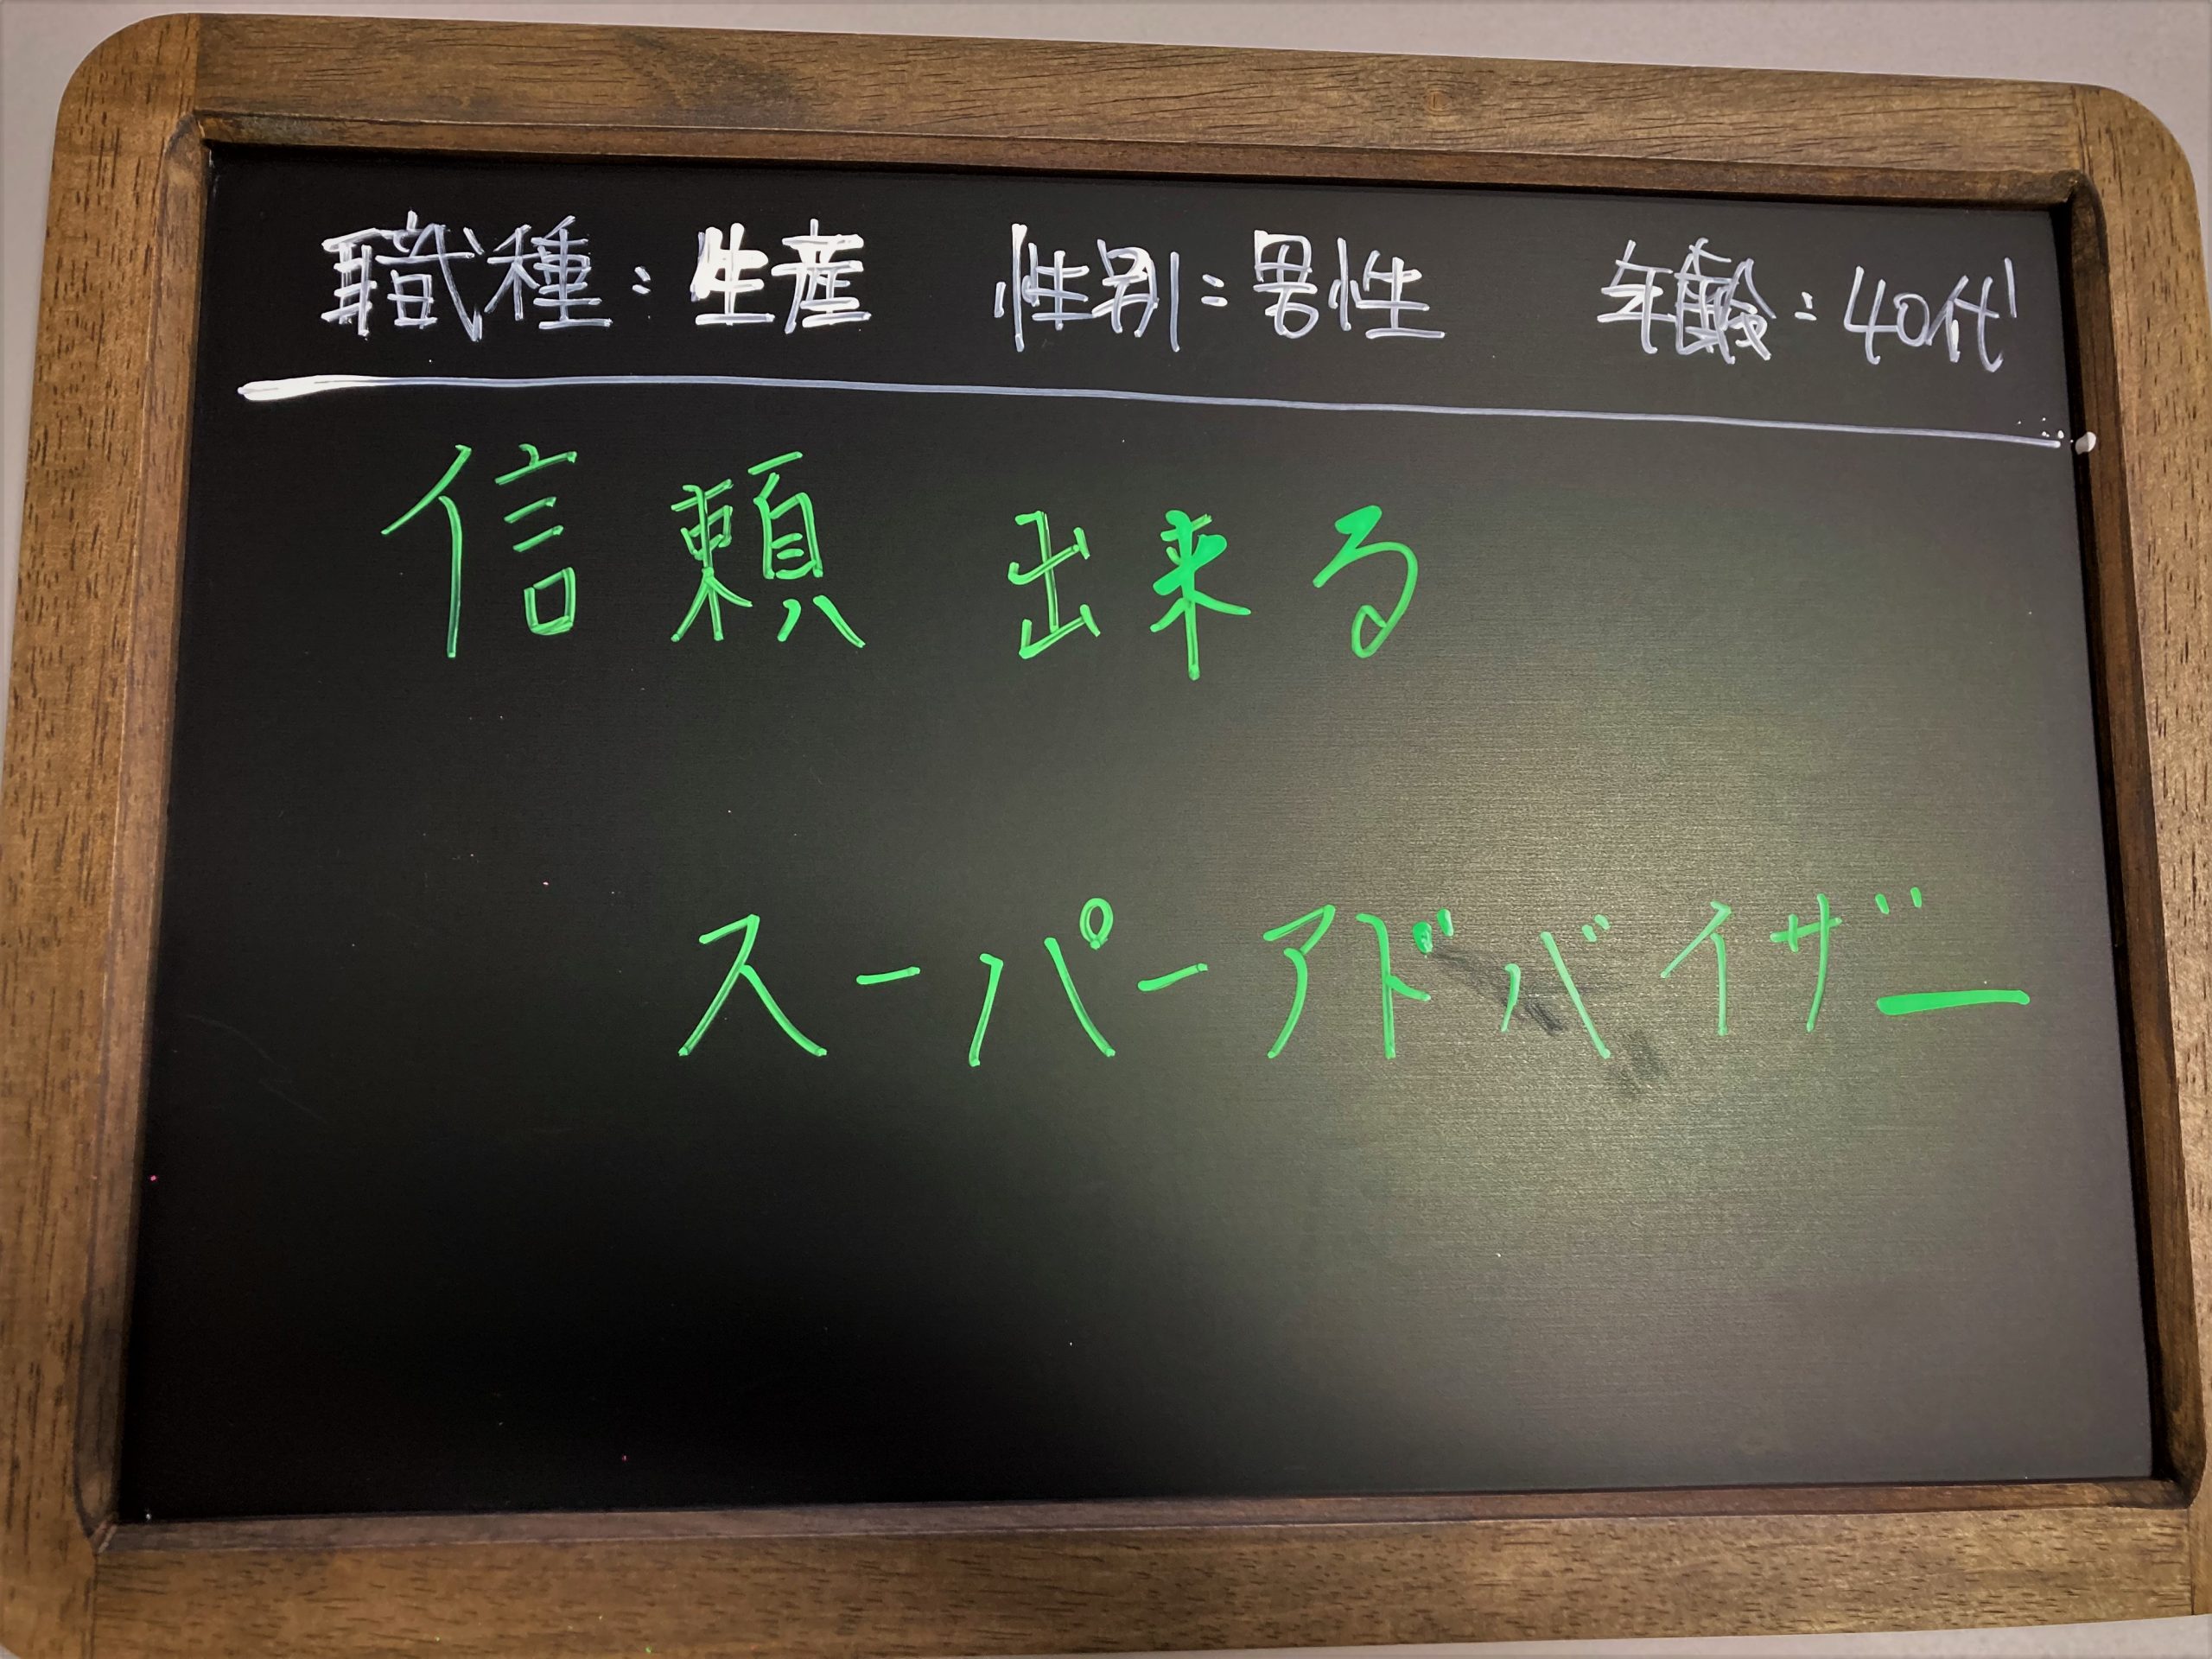 職種：生産 性別：男性 年齢：40代
信頼出来る
スーパーアドバイザー